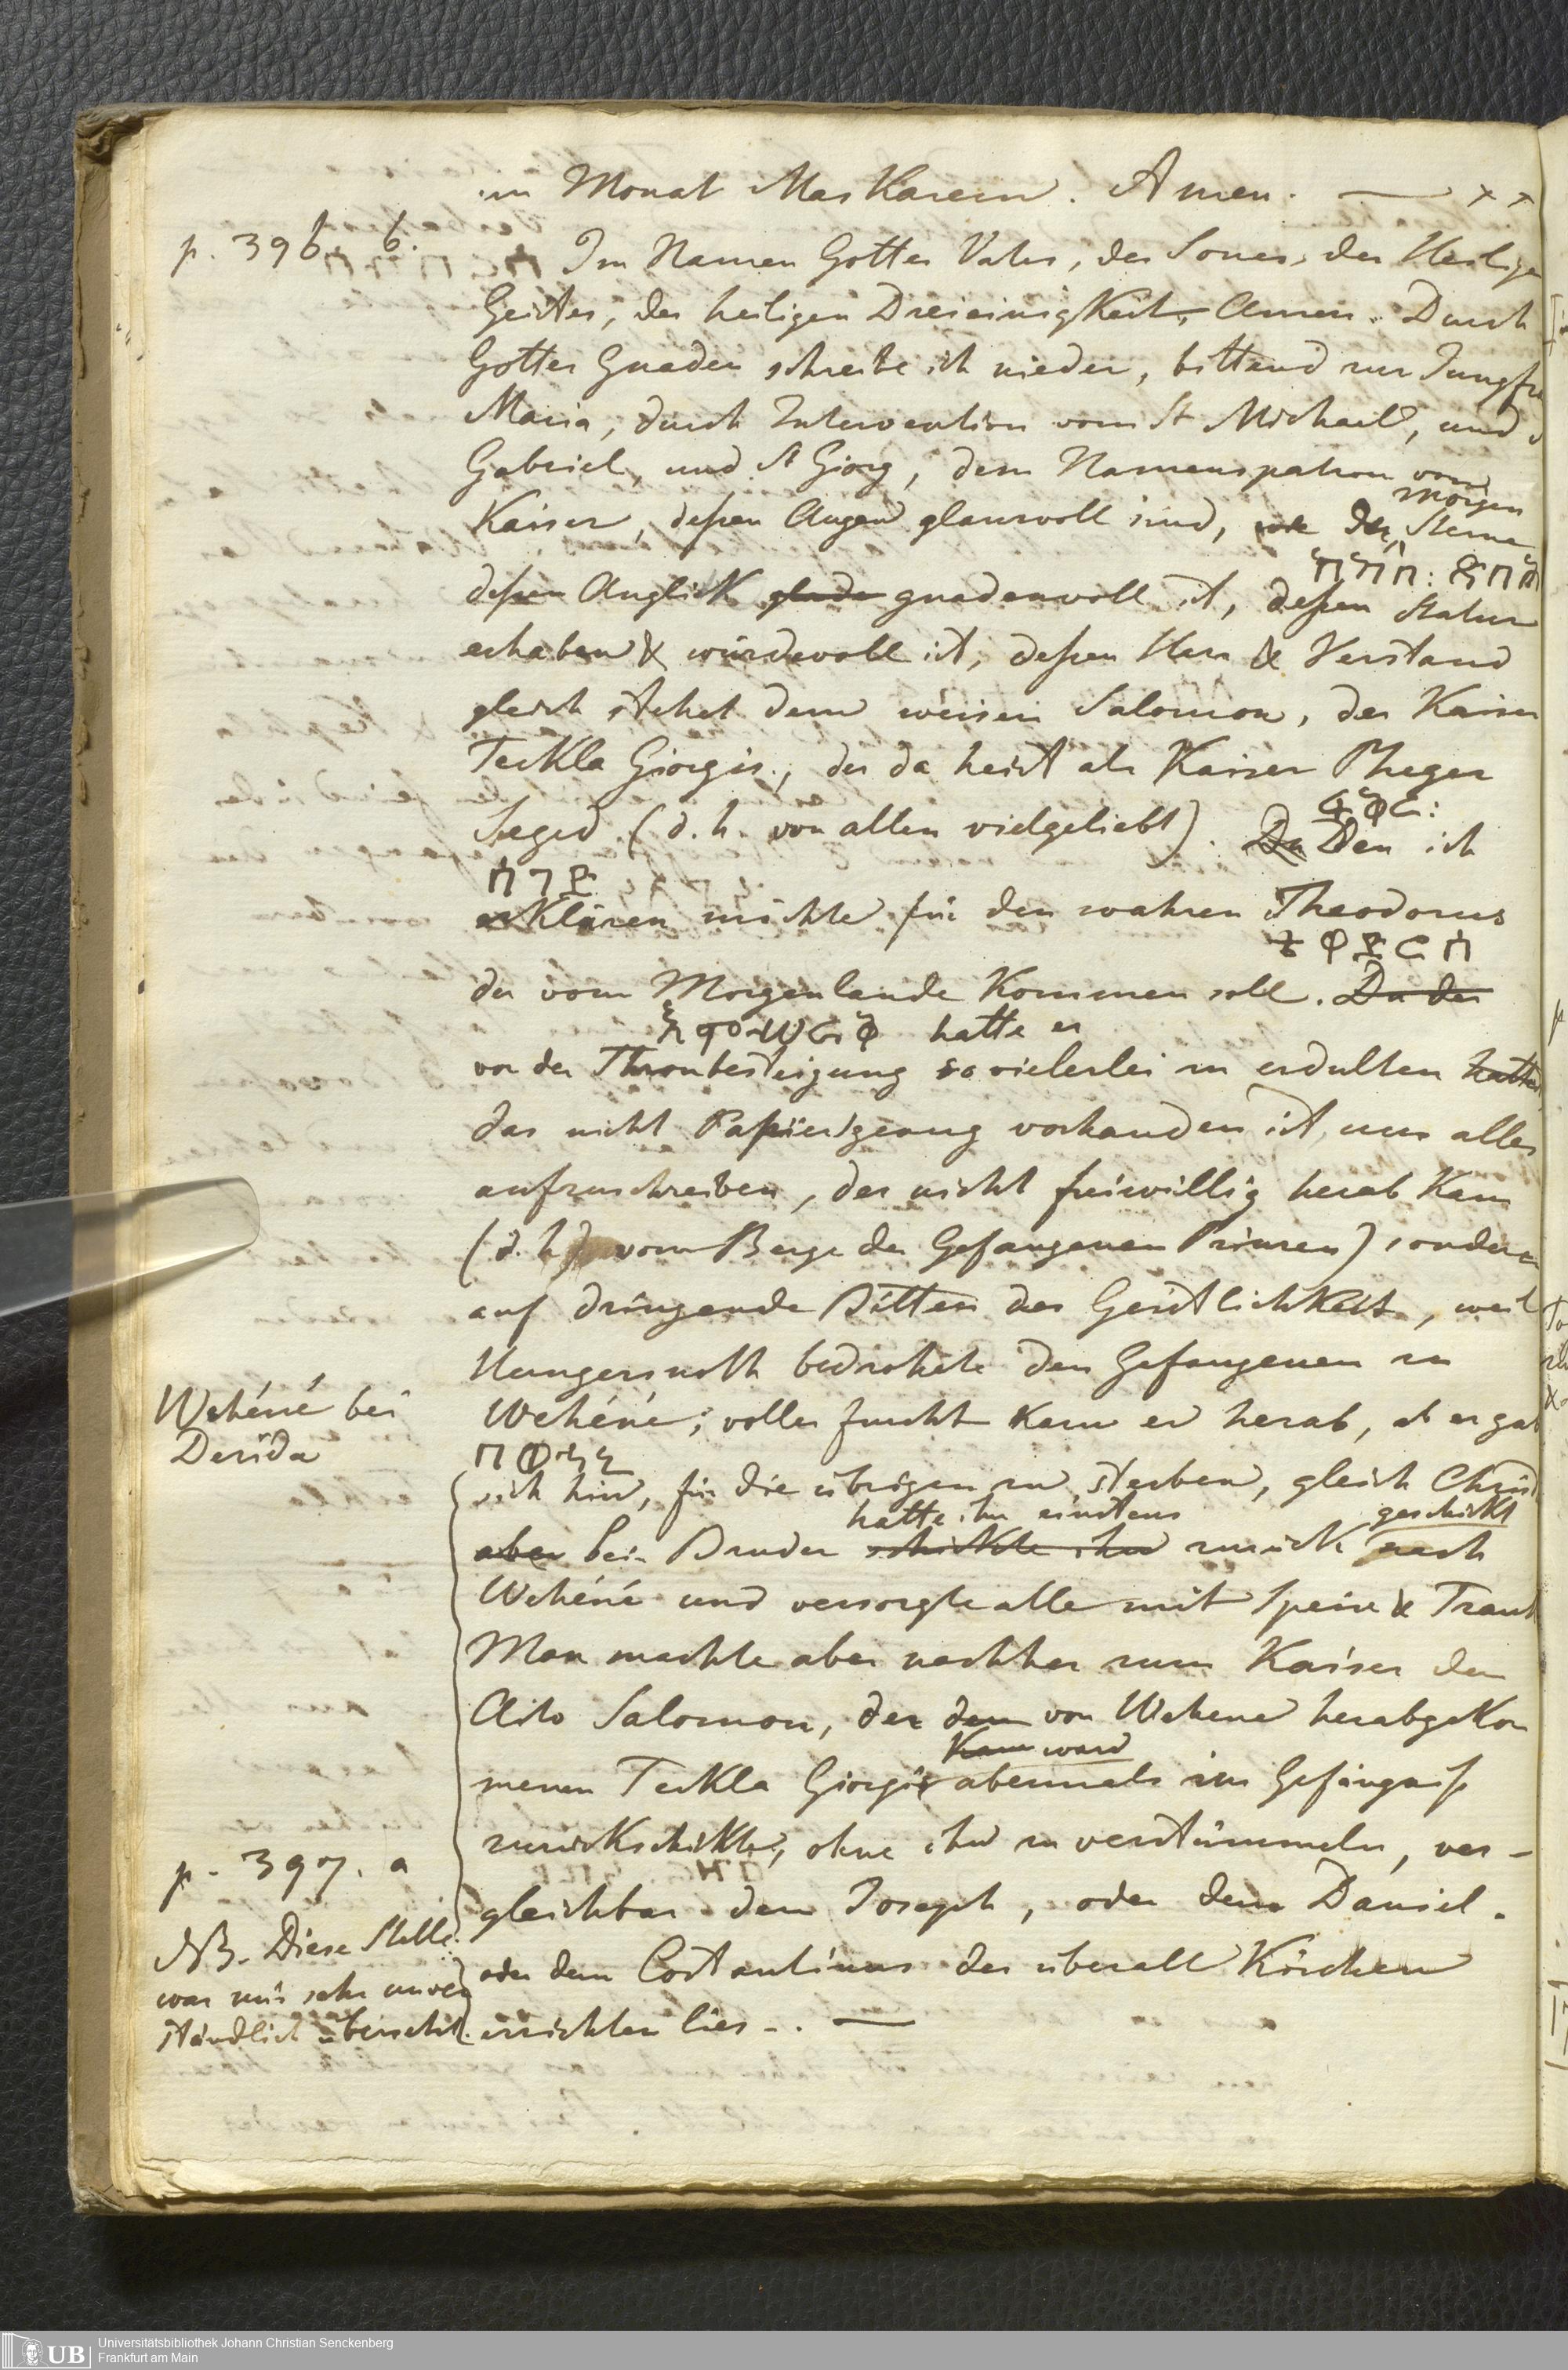 im Monat Maskarem. Amen. — ××
p. 396. b.
Im Namen Gottes Vaters, des Sones, des Heiligen
Geistes, der heiligen Dreieinigkeit, Amen. Durch
Gottes Gnaden schreibe ich nieder, bittend zur Jungfr
Maria, durch Intervention vom St Michael, und
Gabriel, und St Giorg, dem Namenspatron vom
morgen
Kaiser, deßen Augen glanzvoll sind, wie der Sterne
deßen Anglick glade gnadenvoll ist, deßen Statur
erhaben & würdevoll ist, deßen Herz & Verstand
gleich stehet dem weisen Salomon, der Kaiser
Teckla Giorgis, der da heist als Kaiser Pheger
ፍቅር:
Seged (d. h. von allen vielgeliebt). Da Den ich
ሰገድ
erklären möchte für den wahren Theodorus
ቴዎድሮስ
der vom Morgenlande Kommen soll. Da der
hatte er
vor der Thronbesteigung so vielerlei zu erdulten hatte,
das nicht Papier genug vorhanden ist um alles
aufzuschreiben, der nicht freiwillig herab Kam
(d. h. vom Berge der Gefangenen Prinzen) sondern
auf dringende Bitten der Geistlichkeit, weil
Hungersnoth bedrohete den Gefangenen zu
Wehéné bei
Derida
Wehéné; voller furcht Kam er herab, er gab
sich hin, für die übrigen zu sterben, gleich Christ
hatte ihn einstens geschickt
aber sein Bruder schickte ihn zurück nach
Wehéné und versorgte alle mit Speise & Trank
Man machte aber nachher zum Kaiser den
Aito Salomon, der dem von Wehene herabgekom
Kam ward
menen Teckla Giorgis abermals ins Gefängniß
zurückschickte, ohne ihn zu verstümmeln, ver-
p. 397. a
gleichbar dem Joseph, oder dem Daniel.
oder dem Costantinus der überall Kirchen
errichten lies. —
NB. Diese Stelle
war mir sehr unver
ständlich übersetzt.
UB
Universitätsbibliothek Johann Christian Senckenberg
Frankfurt am Main